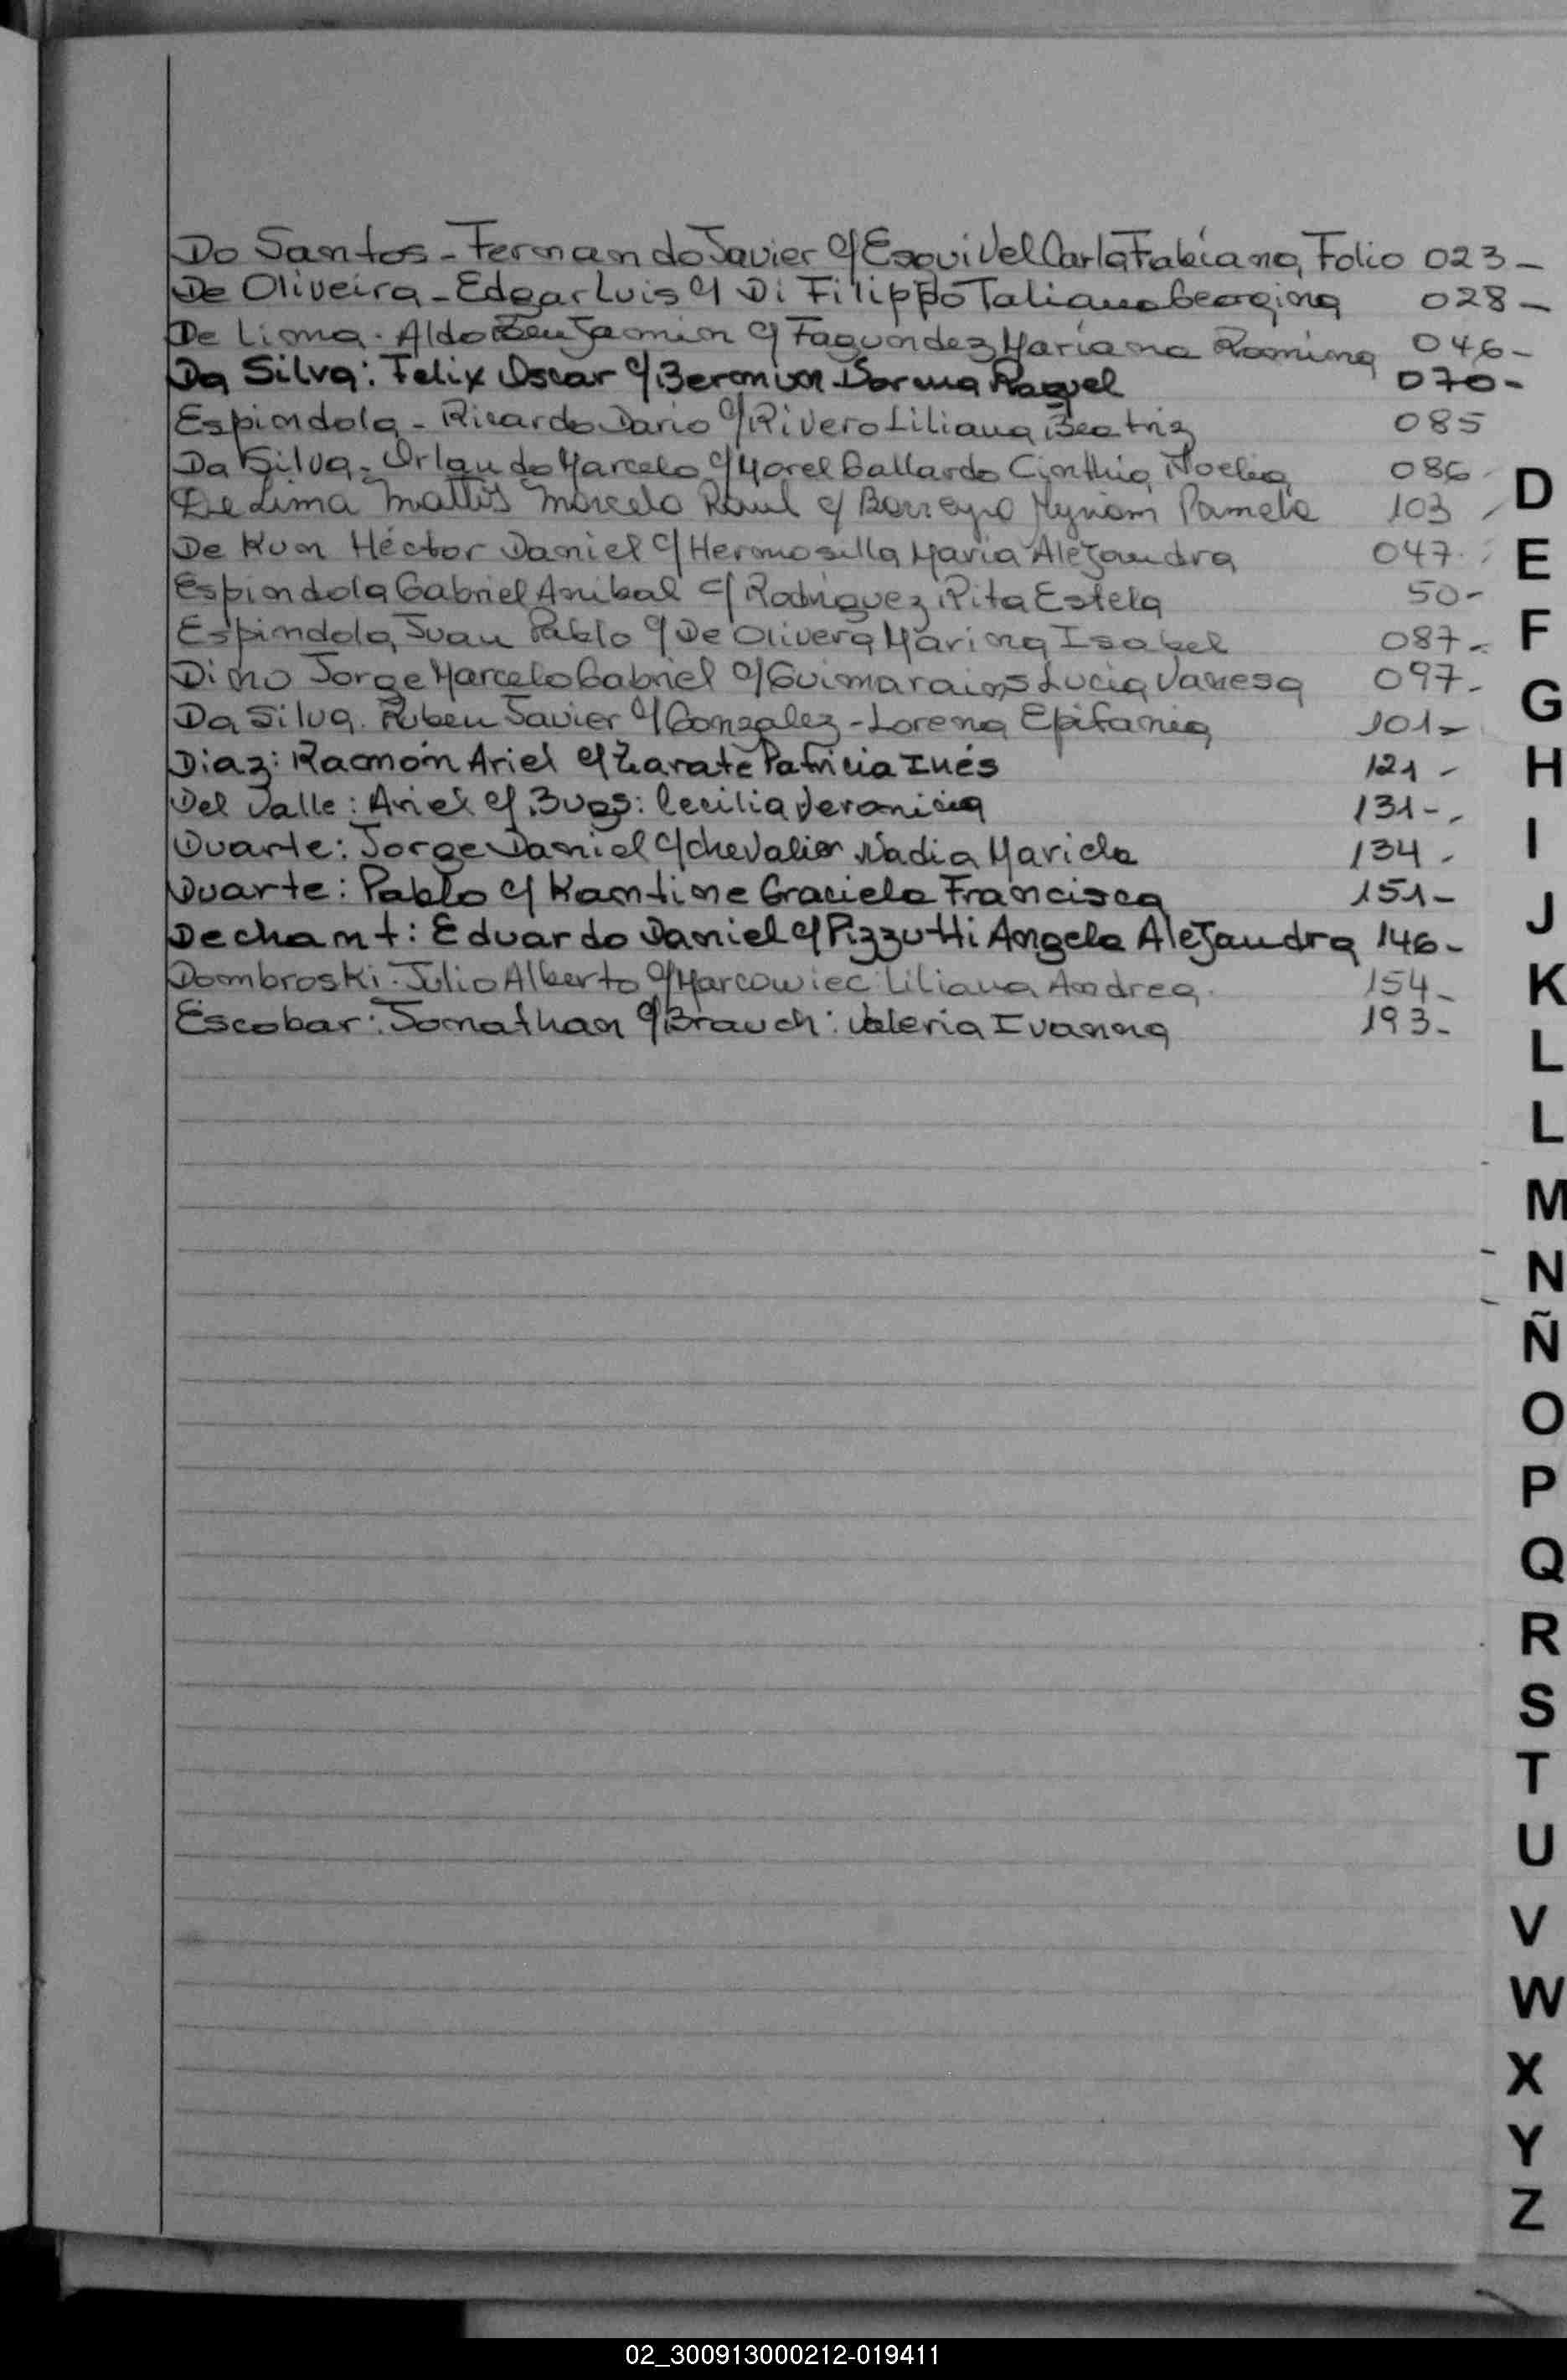 Do Santos - Fernando Javier c/ Esquivel Carla Fabiana, Folio 023 -
De Oliveira - Edgar Luis c/ Di Filippo Taliano Georgina 028 -
De Lima - Aldo Benjamin c/ Fagundez Mariana Romina 046 -
Da Silva: Felix Oscar c/ Beronion Lorena Raquel 070 -
Espindola - Ricardo Dario c/ Rivero Liliana Beatriz 085
Da Silva - Orlando Marcelo c/ Morel Gallardo Cinthia Noelia 086 -
De Lima Mattos Marcelo Raul c/ Borreyro Myriam Pamela 103
De Kum Héctor Daniel c/ Hermosilla Maria Alejandra 047 -
Espindola Gabriel Anibal c/ Rodriguez Rita Estela 50 -
Espindola, Juan Pablo c/ De Olivera Marina Isabel 087 -
Dino Jorge Marcelo Gabriel c/ Guimarains Lucia Vanesa 097 -
Da Silva. Ruben Javier c/ Gonzalez - Lorena Epifania 101 -
Diaz: Ramón Ariel c/ Zarate Patricia Inés 121 -
Del Valle: Ariel c/ Bugs: Cecilia Veronica 131 -
Duarte: Jorge Daniel c/ Chevalier Nadia Mariela 134 -
Duarte: Pablo c/ Kamtine Graciela Francisca 151 -
Dechamt: Eduardo Daniel c/ Pizzutti Angela Alejandra 146 -
Dombroski - Julio Alberto c/ Marcowiec Liliana Andrea. 154 -
Escobar: Jonathan c/ Brauch: Valeria Ivanna 193 -
D
E
F
G
H
I
J
K
L
L
M
N
Ñ
O
P
Q
R
S
T
U
V
W
X
Y
Z
02_300913000212-019411